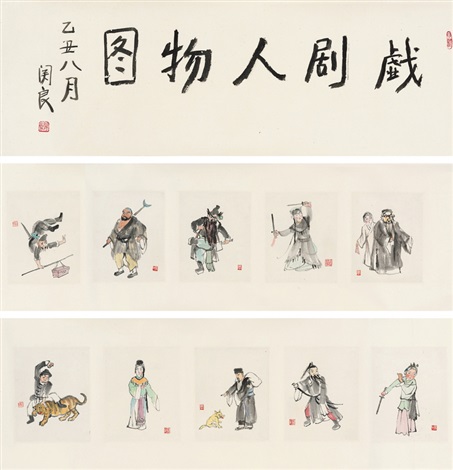 戏剧人物图
乙丑八月
关良